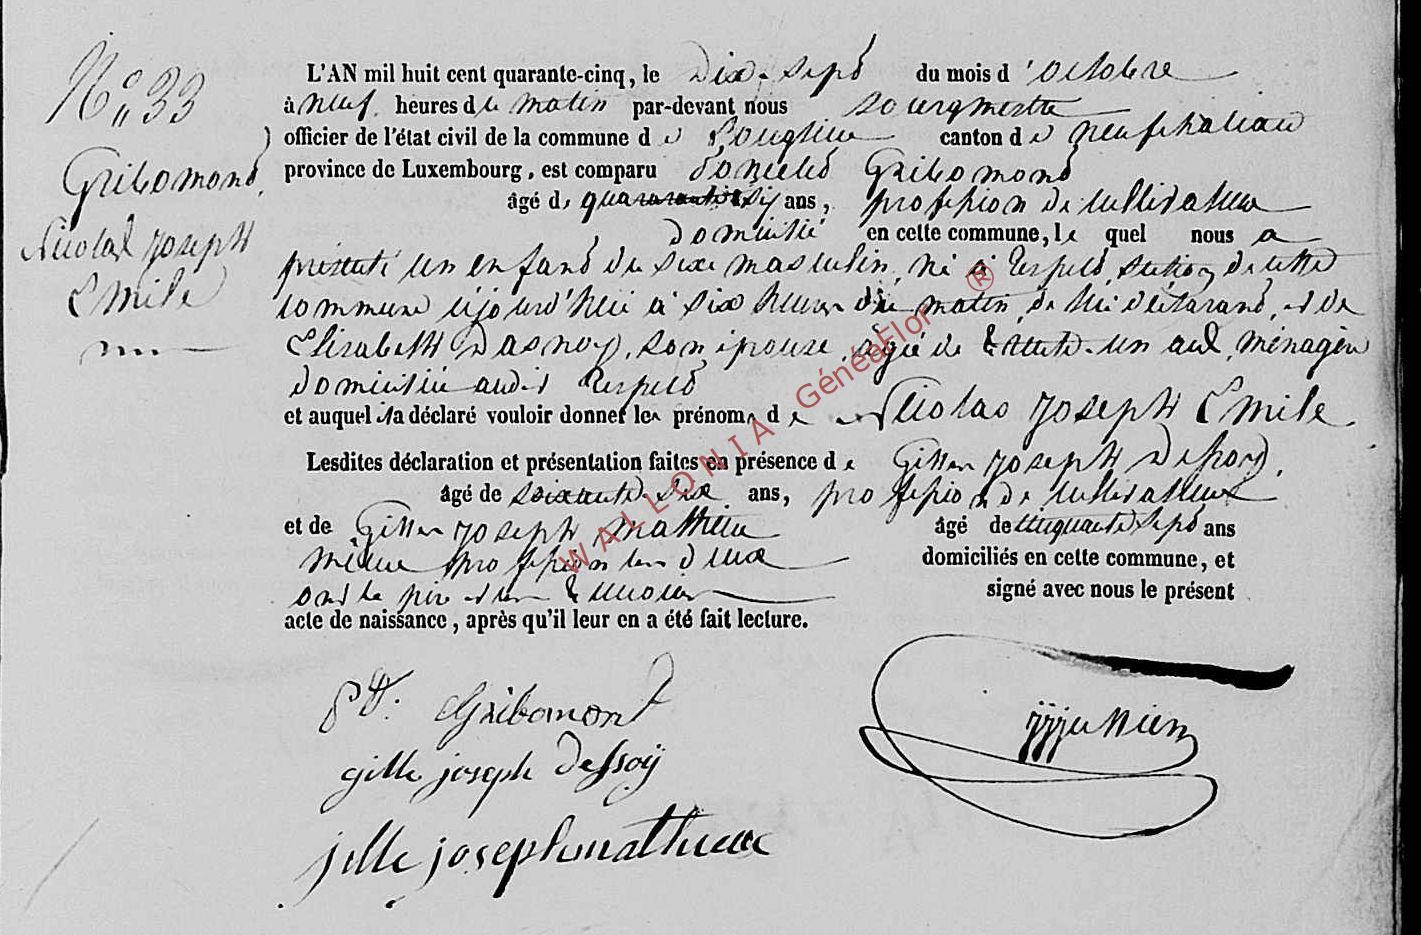 N° 33
Gribomond,
Nicolas Joseph
Emile
L'AN mil huit cent quarante-cinq, le Dix-Sept du mois d'octobre
à neuf heures du matin par-devant nous Bourgmestre
officier de l'état civil de la commune de Longlier canton de neufchateau
province de Luxembourg, est comparu Gribomond
âgé de quarante six ans, profession de cultivateur
domicilié en cette commune, lequel nous a
présenté un enfand du sexe masculin, né à Respelt, section de cette
commune cejourd'hui à six heures du matin, de lui déclarand, et de
Elisabeth Dasnoy, son épouse, âgée de trente-un ans, ménagère
domiciliée audit Respelt
et auquel il a déclaré vouloir donner les prénoms de Nicolas Joseph Emile
Lesdites déclaration et présentation faites en présence de Gilles Joseph Dessoy,
âgé de soixante-six ans, profession de cultivateur
et de Gilles Joseph Mathieu âgé de cinquante Sept ans
même profession les deux domiciliés en cette commune, et
ont le père et les témoins signé avec nous le présent
acte de naissance, après qu'il leur en a été fait lecture.
Gribomont
gille joseph Dessoÿ
jille joseph mathieu
WALLONIA GénéaFlor ®